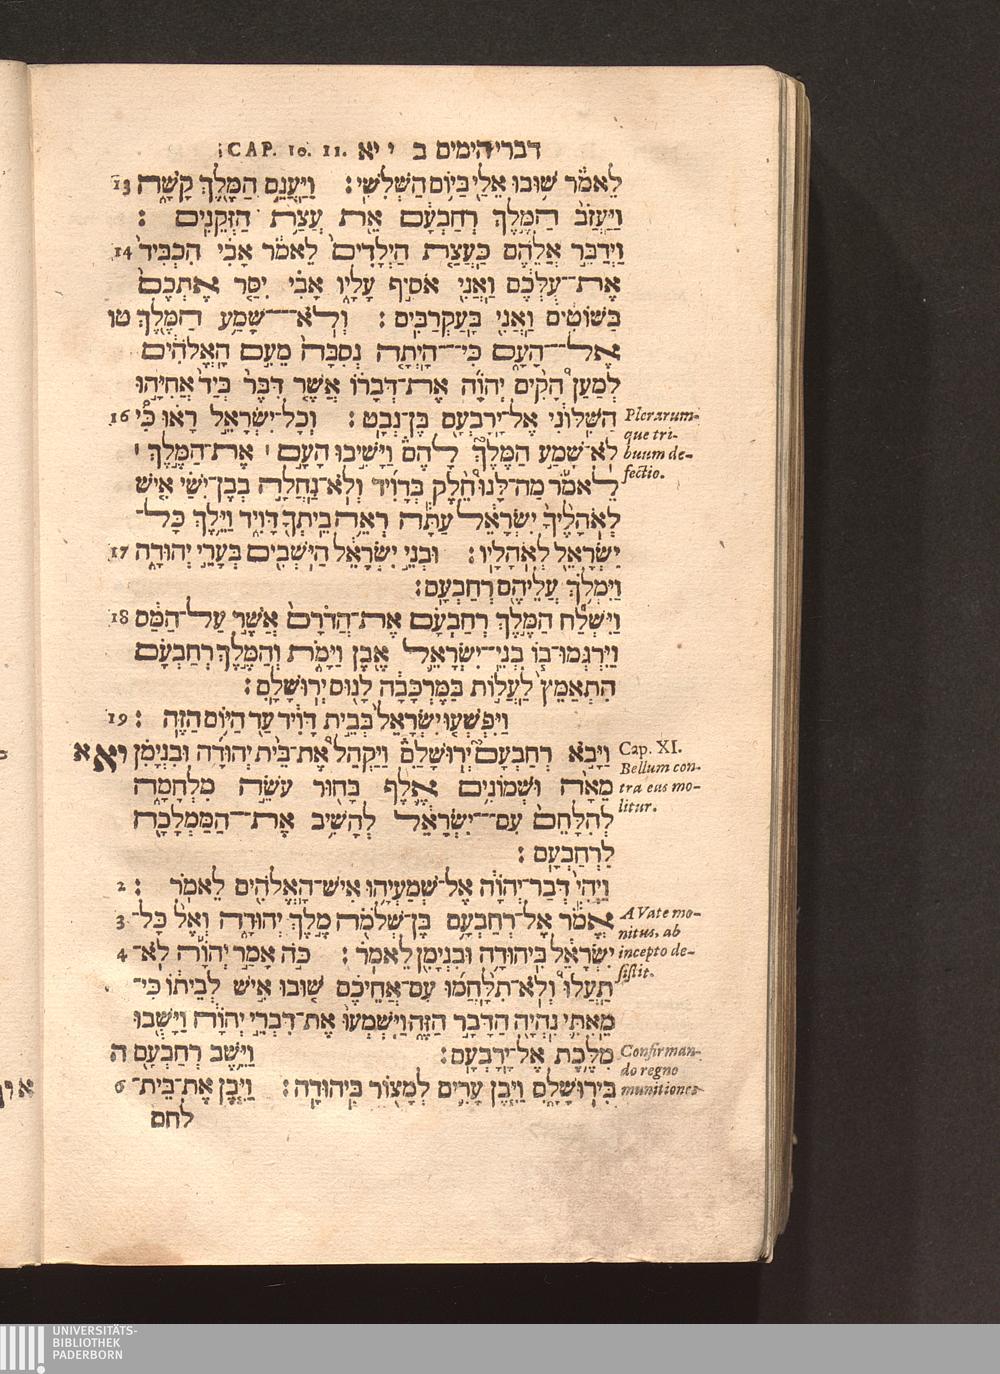 דברי הימים ב י יא CAP. 10. 11.
לֵאמֹר שׁוּבוּ אֵלַי בַּיּוֹם הַשְּׁלִשִׁי׃ וַיַּעֲנֵם הַמֶּלֶךְ קָשָׁה 13
וַיַּעֲזֹב הַמֶּלֶךְ רְחַבְעָם אֵת עֲצַת הַזְּקֵנִים׃
וַיְדַבֵּר אֲלֵהֶם כַּעֲצַת הַיְלָדִים לֵאמֹר אָבִי הִכְבִּיד 14
אֶת־עֻלְּכֶם וַאֲנִי אֹסִיף עָלָיו אָבִי יִסַּר אֶתְכֶם
בַּשּׁוֹטִים וַאֲנִי בָּעַקְרַבִּים׃ וְלֹא־שָׁמַע הַמֶּלֶךְ טו
אֶל־הָעָם כִּי־הָיְתָה נְסִבָּה מֵעִם הָאֱלֹהִים
לְמַעַן הָקִים יְהוָה אֶת־דְּבָרוֹ אֲשֶׁר דִּבֶּר בְּיַד אֲחִיָּהוּ
הַשִּׁלוֹנִי אֶל־יָרָבְעָם בֶּן־נְבָט׃ וְכָל־יִשְׂרָאֵל רָאוּ כִּי 16
Plerarum-
que tri-
buum de-
fectio.
לֹא־שָׁמַע הַמֶּלֶךְ לָהֶם וַיָּשִׁיבוּ הָעָם ׀ אֶת־הַמֶּלֶךְ ׀
לֵאמֹר מַה־לָּנוּ חֵלֶק בְּדָוִיד וְלֹא־נַחֲלָה בְבֶן־יִשַׁי אִישׁ
לְאֹהָלֶיךָ יִשְׂרָאֵל עַתָּה רְאֵה בֵיתְךָ דָּוִיד וַיֵּלֶךְ כָּל־
יִשְׂרָאֵל לְאֹהָלָיו׃ וּבְנֵי יִשְׂרָאֵל הַיֹּשְׁבִים בְּעָרֵי יְהוּדָה 17
וַיִּמְלֹךְ עֲלֵיהֶם רְחַבְעָם׃
וַיִּשְׁלַח הַמֶּלֶךְ רְחַבְעָם אֶת־הֲדֹרָם אֲשֶׁר עַל־הַמַּס 18
וַיִּרְגְּמוּ־בוֹ בְנֵי־יִשְׂרָאֵל אֶבֶן וַיָּמֹת וְהַמֶּלֶךְ רְחַבְעָם
הִתְאַמֵּץ לַעֲלוֹת בַּמֶּרְכָּבָה לָנוּס יְרוּשָׁלָםִ׃
וַיִּפְשְׁעוּ יִשְׂרָאֵל בְּבֵית דָּוִיד עַד הַיּוֹם הַזֶּה׃ 19
Cap. XI.
Bellum con-
tra eus mo-
litur.
וַיָּבֹא רְחַבְעָם יְרוּשָׁלַםִ וַיַּקְהֵל אֶת־בֵּית יְהוּדָה וּבִנְיָמִן יא א
מֵאָה וּשְׁמוֹנִים אֶלֶף בָּחוּר עֹשֵׂה מִלְחָמָה
לְהִלָּחֵם עִם־יִשְׂרָאֵל לְהָשִׁיב אֶת־הַמַּמְלָכָה
לִרְחַבְעָם׃
וַיְהִי דְּבַר־יְהוָה אֶל־שְׁמַעְיָהוּ אִישׁ־הָאֱלֹהִים לֵאמֹר׃ 2
אֱמֹר אֶל־רְחַבְעָם בֶּן־שְׁלֹמֹה מֶלֶךְ יְהוּדָה וְאֶל כָּל־ 3
A Vate mo-
nitus, ab
incepto de-
sistit.
יִשְׂרָאֵל בִּיהוּדָה וּבִנְיָמִן לֵאמֹר׃ כֹּה אָמַר יְהוָה לֹא־ 4
תַעֲלוּ וְלֹא־תִלָּחֲמוּ עִם־אֲחֵיכֶם שׁוּבוּ אִישׁ לְבֵיתוֹ כִּי־
מֵאִתִּי נִהְיָה הַדָּבָר הַזֶּה וַיִּשְׁמְעוּ אֶת־דִּבְרֵי יְהוָה וַיָּשֻׁבוּ
מִלֶּכֶת אֶל־יָרָבְעָם׃ וַיֵּשֶׁב רְחַבְעָם ה
Confirman-
do regno
munitiones
בִּירוּשָׁלָםִ וַיִּבֶן עָרִים לְמָצוֹר בִּיהוּדָה׃ וַיִּבֶן אֶת־בֵּית־ 6
לחם
UNIVERSITÄTS-
BIBLIOTHEK
PADERBORN